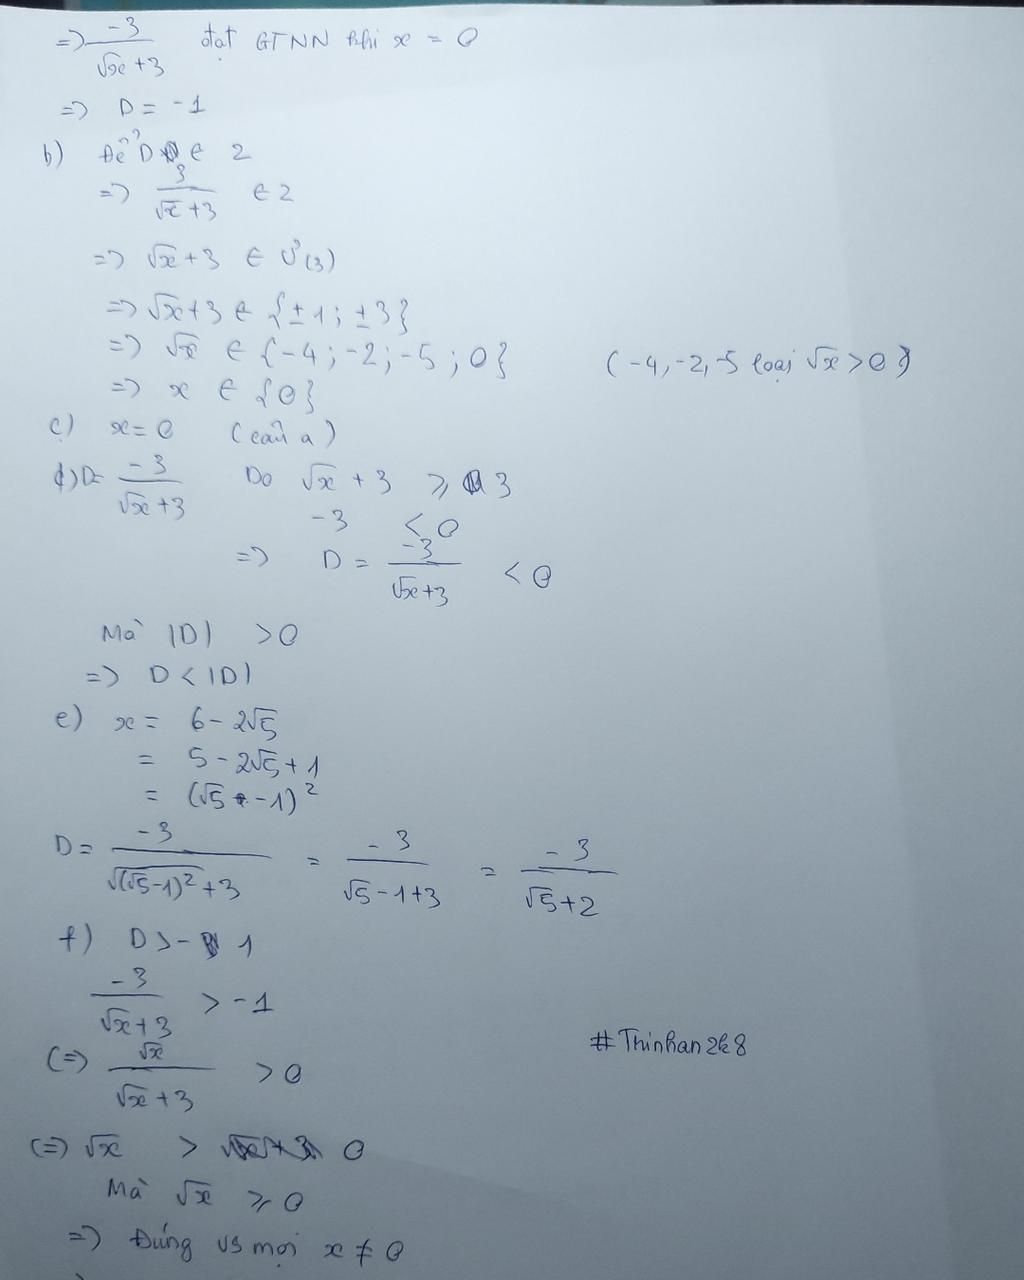 => -3/(√x+3) đạt GTNN khi x = 0
=> D = -1
b) Để D ∈ Z
=> 3/(√x+3) ∈ Z
=> √x+3 ∈ Ư(3)
=> √x+3 ∈ {±1; ±3}
=> √x ∈ {-4; -2; -5; 0} (-4, -2, -5 loại √x > 0)
=> x ∈ {0}
c) x = 0 (câu a)
d) D = -3/(√x+3) Do √x + 3 ≥ 3
-3 < 0
=> D = -3/(√x+3) < 0
Mà |D| > 0
=> D < |D|
e) x = 6 - 2√5
= 5 - 2√5 + 1
= (√5 - 1)²
D = -3/(√(√5-1)² + 3) = -3/(√5-1+3) = -3/(√5+2)
f) D > -1
-3/(√x+3) > -1
(=> √x/(√x+3) > 0
#Thinhan2k8
(=) √x > 0
Mà √x ≥ 0
=> Đúng vs mọi x ≠ 0